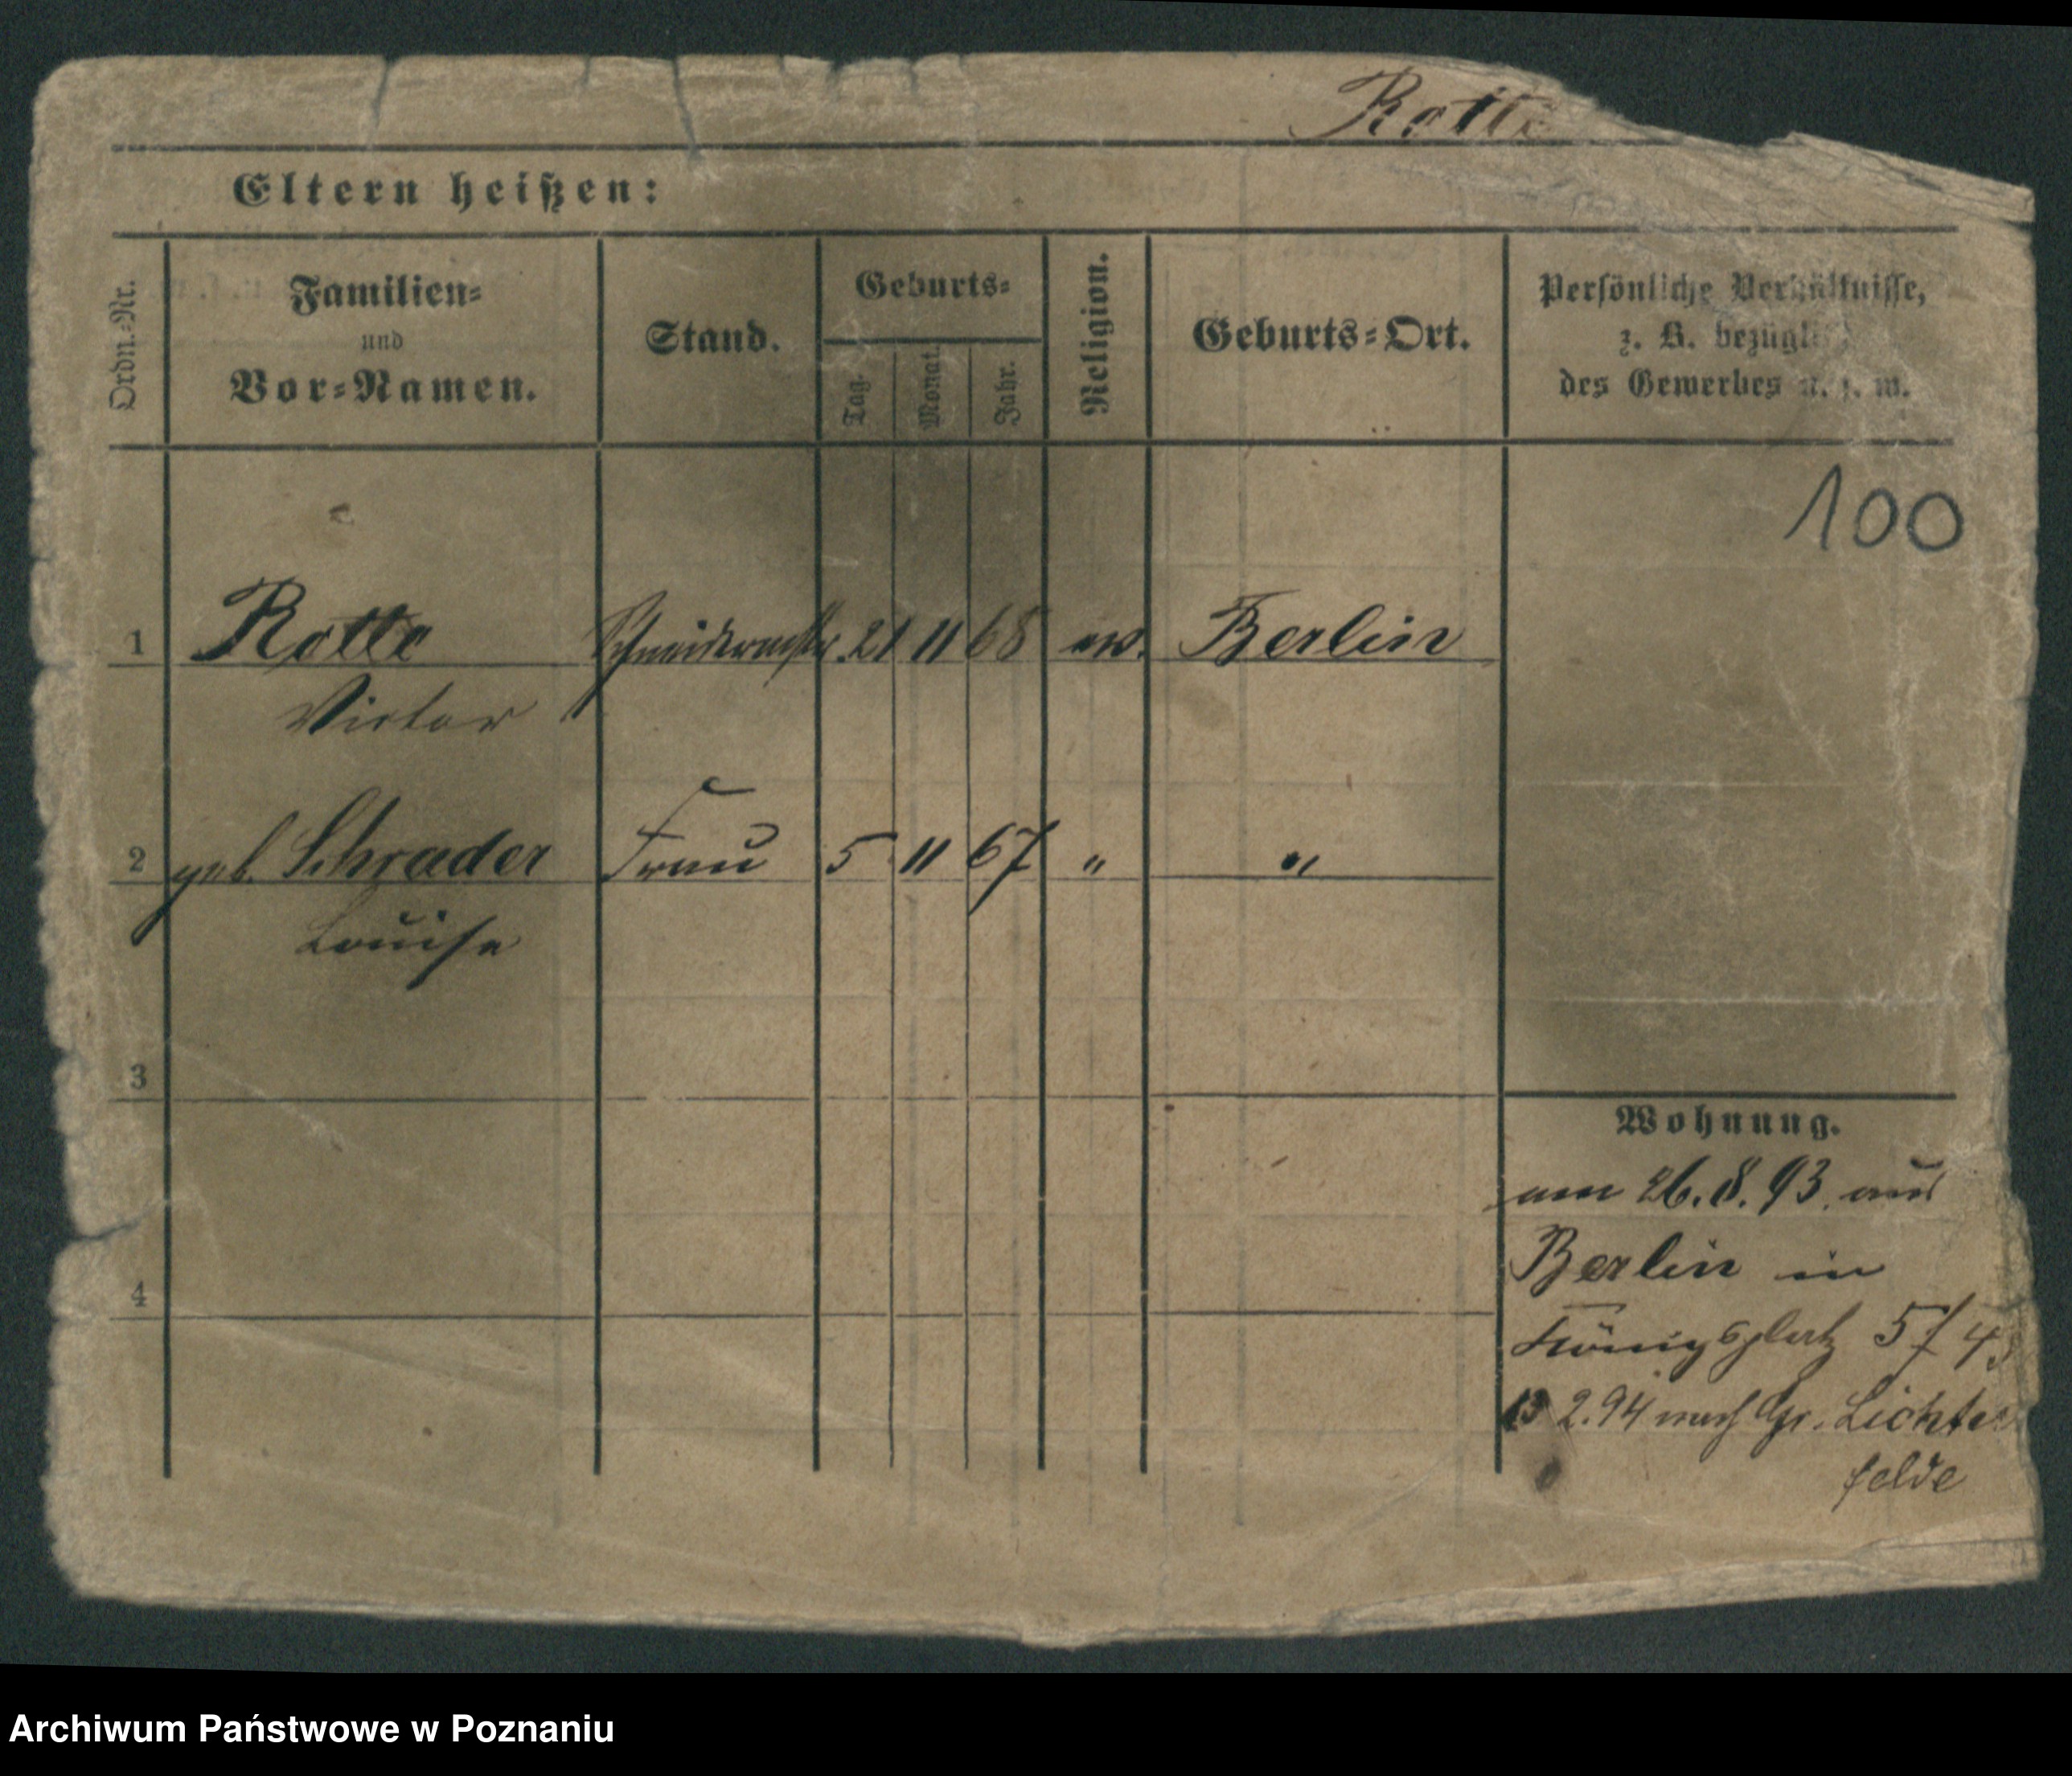 Rotte
Eltern heißen:
Ordn.-Nr.
Familien-
und
Vor-Namen.
Stand.
Geburts-
Tag.
Monat.
Jahr.
Religion.
Geburts-Ort.
Persönliche Verhältnisse,
z. B. bezüglich
des Gewerbes u. s. w.
100
1 Rotte Schneidermstr. 21 11 68 ev. Berlin
Victor
2 geb. Schrader Frau 5 11 67 " "
Louise
3
4
Wohnung.
am 26. 8. 93. aus
Berlin in
Königsplatz 5/
2.94 nach Gr. Lichter
felde
Archiwum Państwowe w Poznaniu